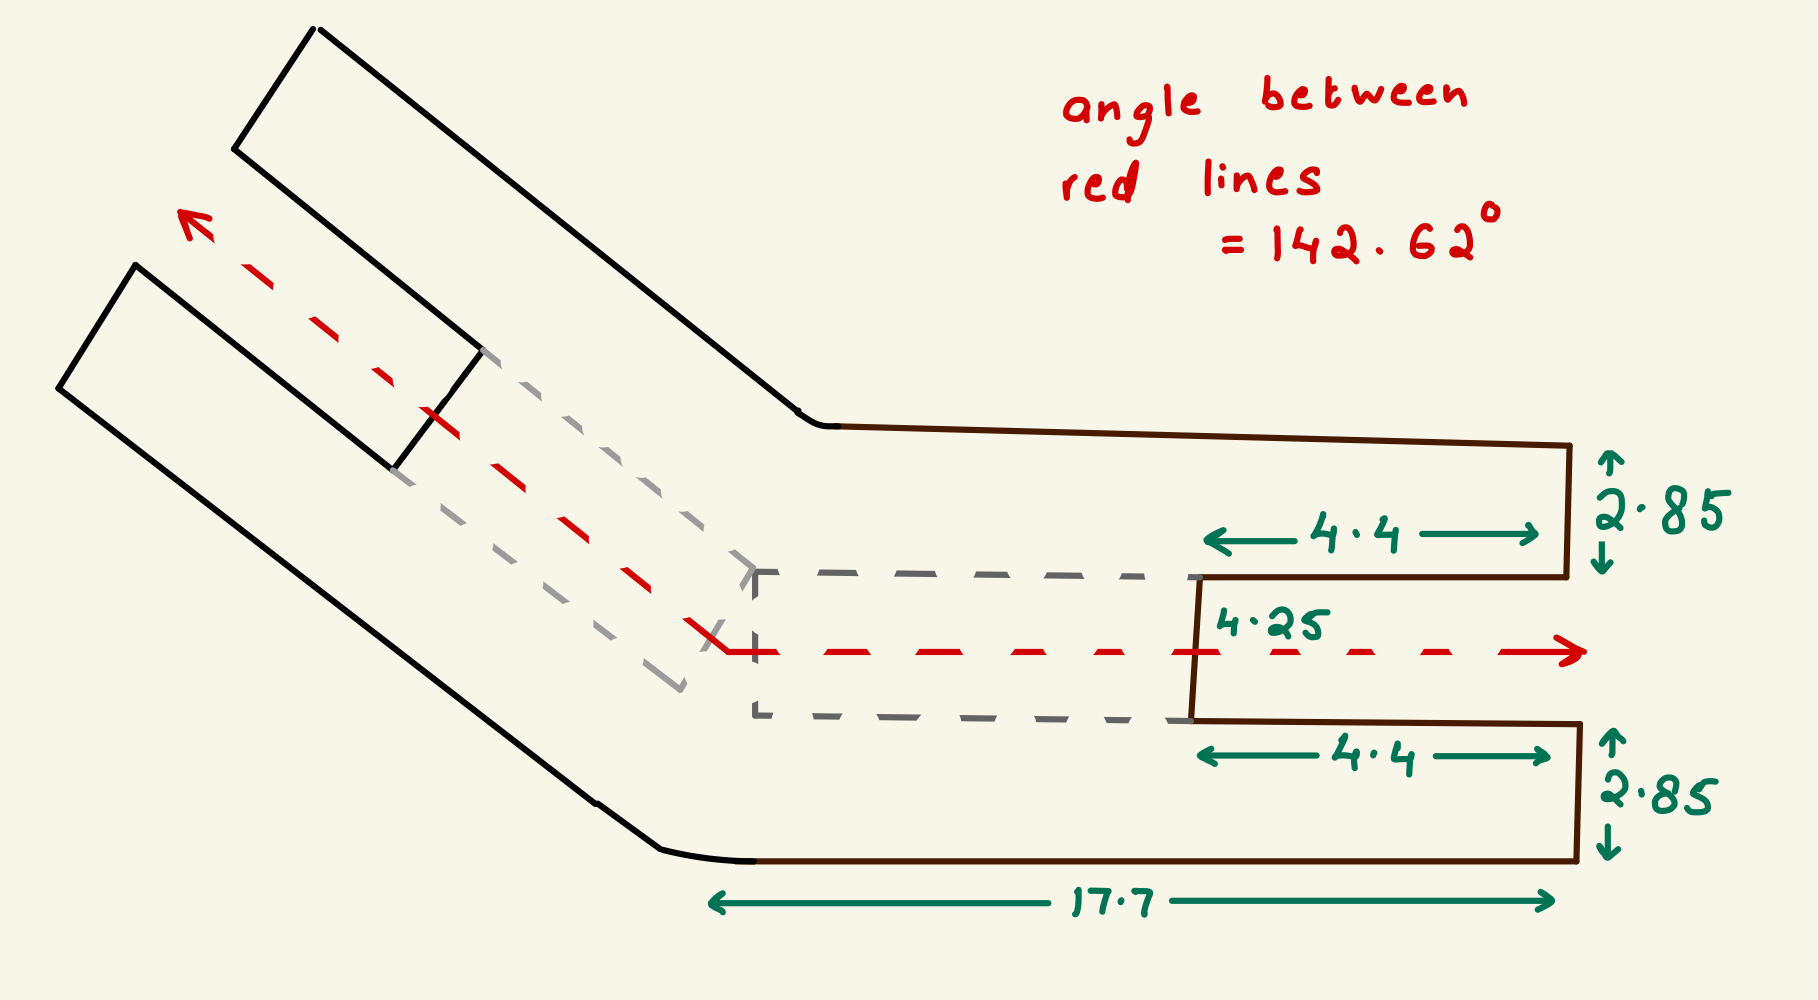 angle between
red lines
= 142.62°
2.85
4.4
4.25
4.4
2.85
17.7